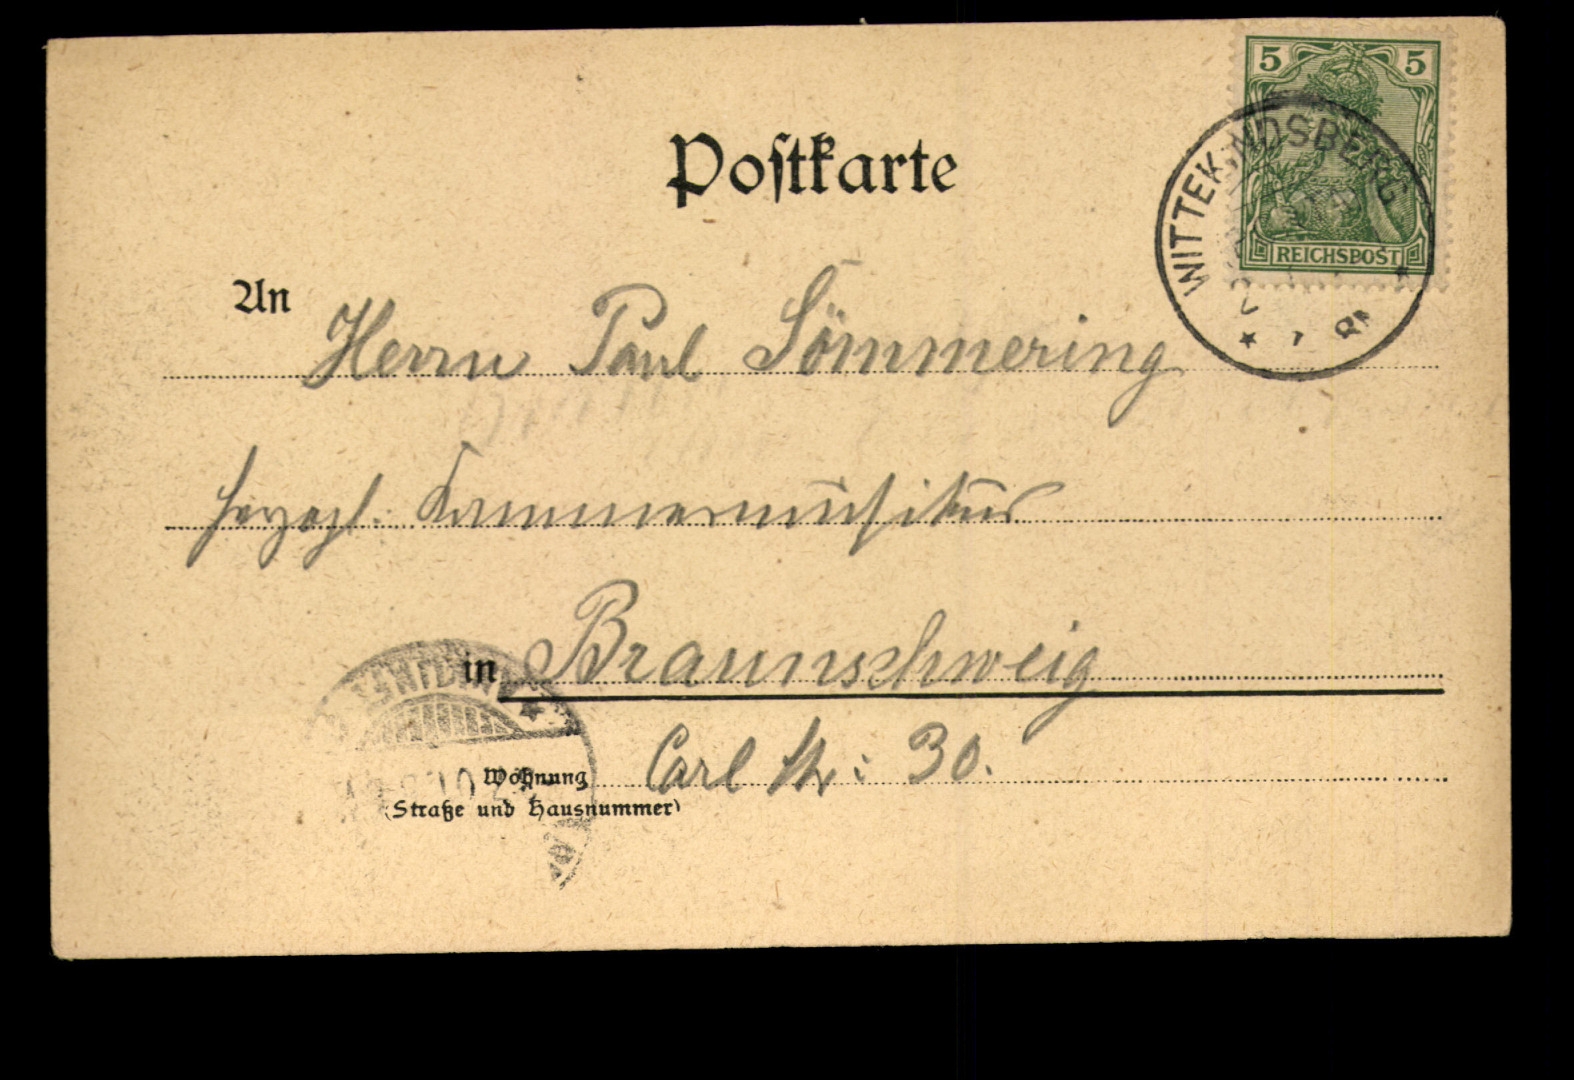 5 5
REICHSPOST
WITTEKINDSBERG
Postkarte
An Herrn Paul Sömmering
herzogl. Kammermusikus
in Braunschweig
Wohnung Carl Str: 30.
(Straße und Hausnummer)